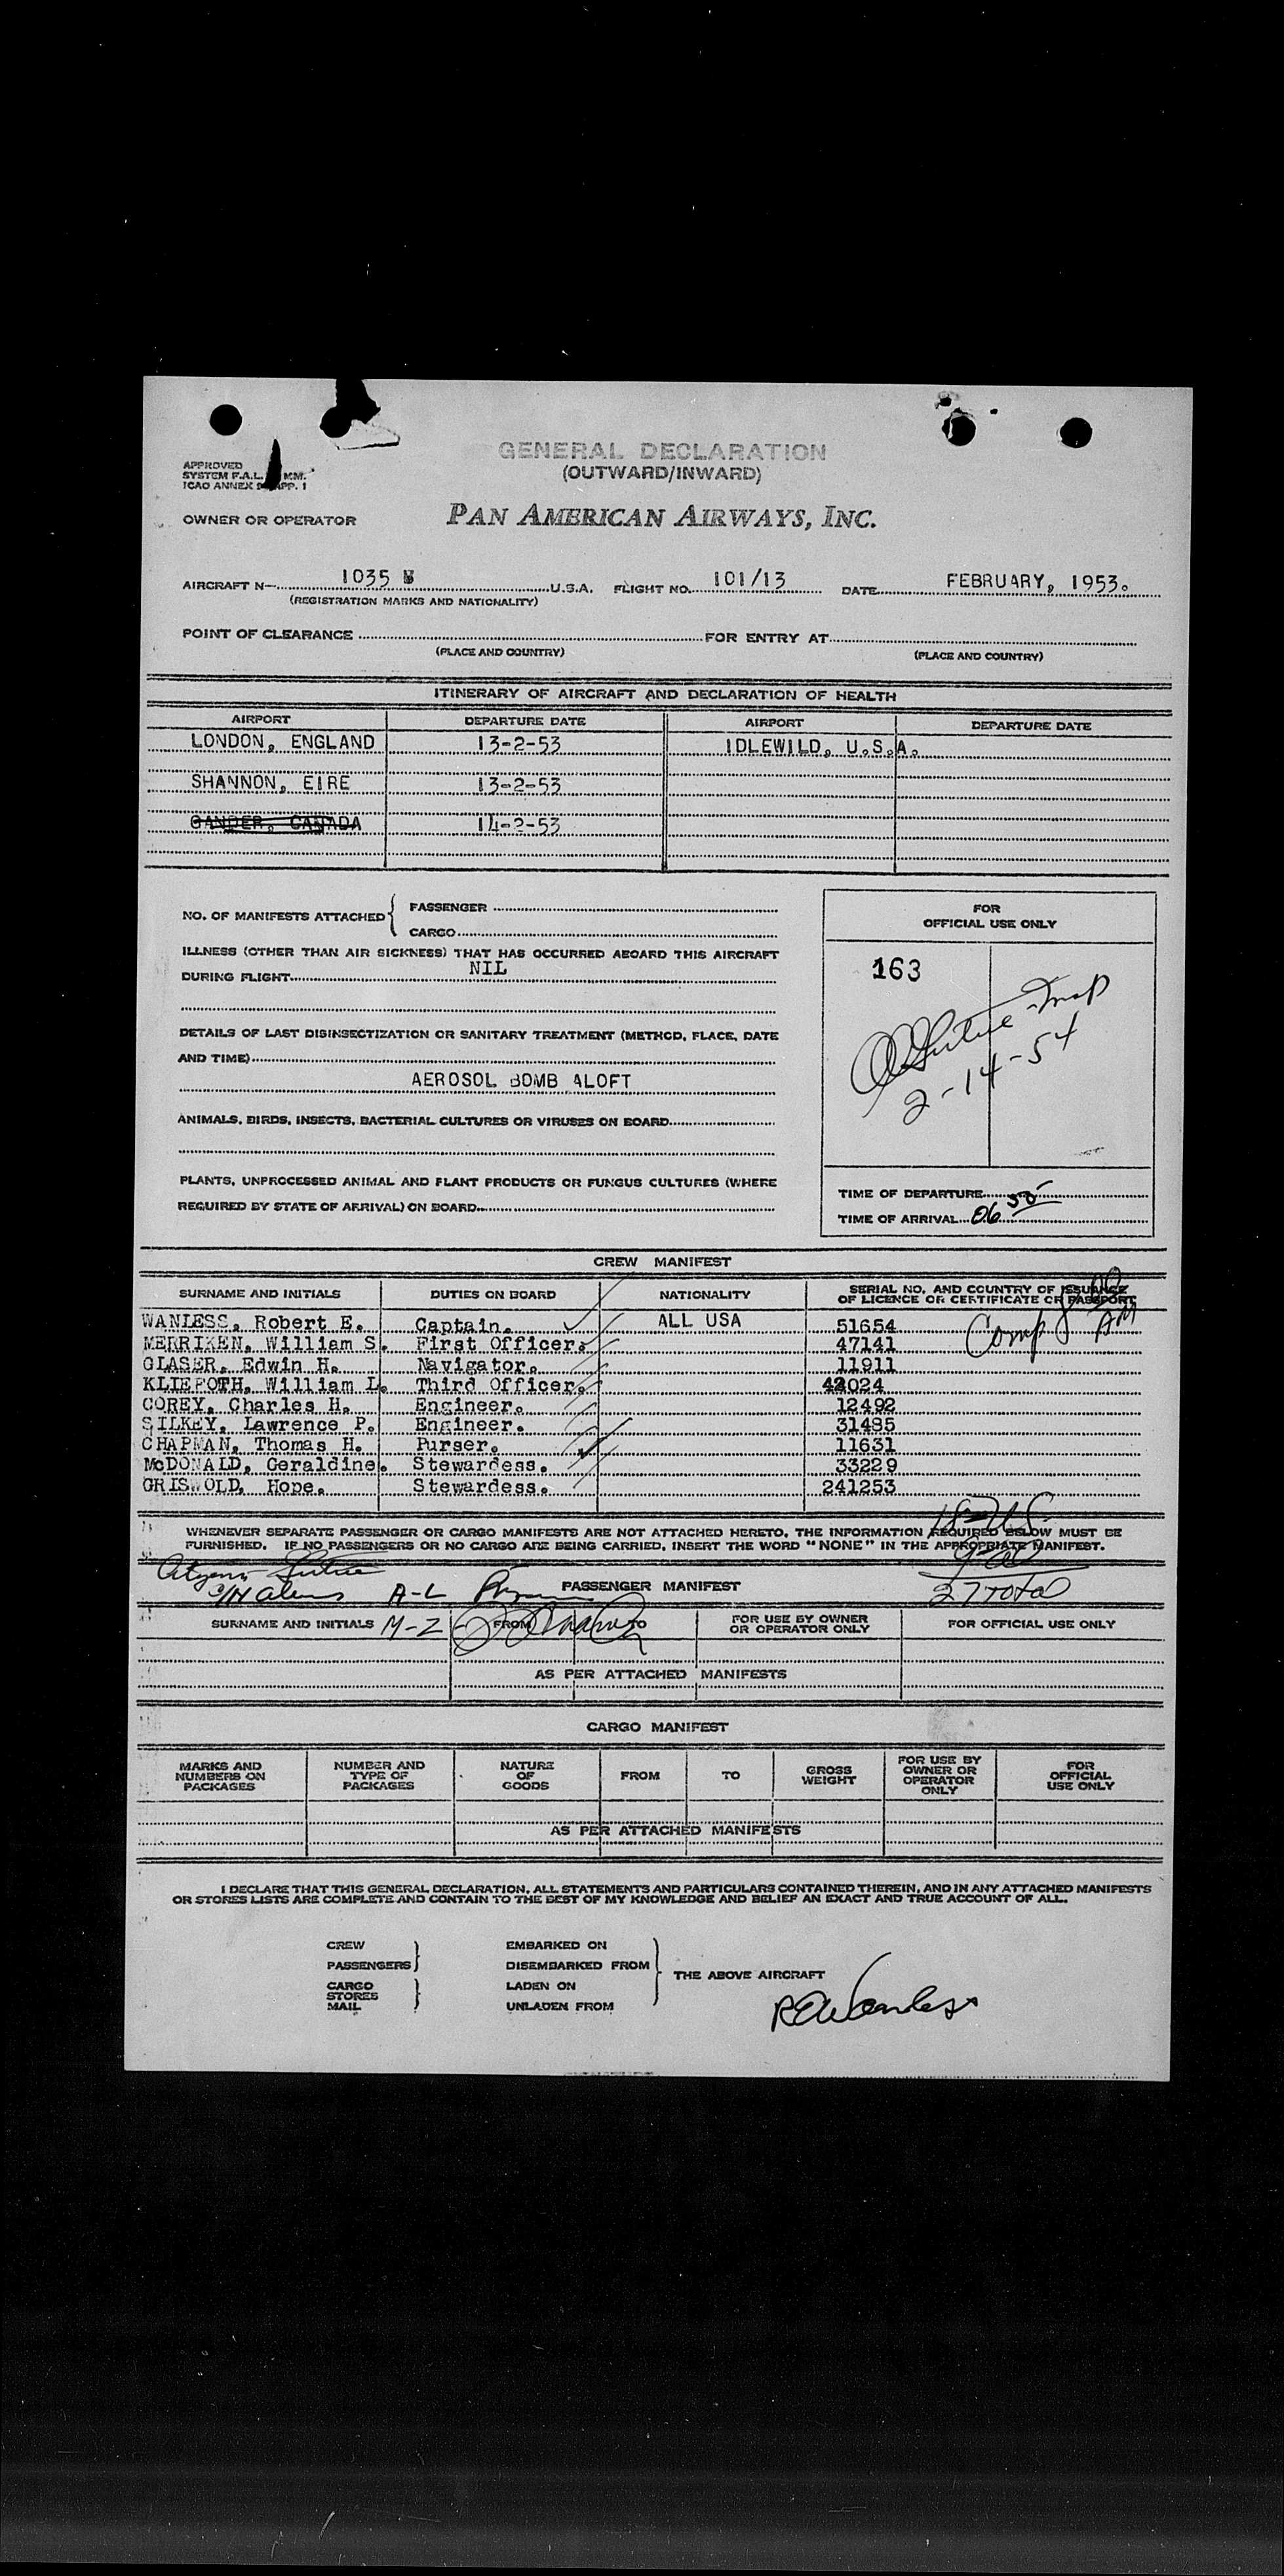 GENERAL DECLARATION
(OUTWARD/INWARD)
APPROVED
SYSTEM F.A.L. MM.
ICAO ANNEX 9 APP. 1
OWNER OR OPERATOR PAN AMERICAN AIRWAYS, INC.
AIRCRAFT N- 1035 U.S.A. FLIGHT NO. 101/13 DATE FEBRUARY, 1953.
(REGISTRATION MARKS AND NATIONALITY)
POINT OF CLEARANCE FOR ENTRY AT
(PLACE AND COUNTRY) (PLACE AND COUNTRY)
ITINERARY OF AIRCRAFT AND DECLARATION OF HEALTH
AIRPORT DEPARTURE DATE AIRPORT DEPARTURE DATE
LONDON, ENGLAND 13-2-53 IDLEWILD, U.S.A.
SHANNON, EIRE 13-2-53
GANDER, CANADA 14-2-53
NO. OF MANIFESTS ATTACHED PASSENGER
CARGO
FOR
OFFICIAL USE ONLY
ILLNESS (OTHER THAN AIR SICKNESS) THAT HAS OCCURRED ABOARD THIS AIRCRAFT
DURING FLIGHT NIL
163
2-14-54
DETAILS OF LAST DISINSECTIZATION OR SANITARY TREATMENT (METHOD, PLACE, DATE
AND TIME)
AEROSOL BOMB ALOFT
ANIMALS, BIRDS, INSECTS, BACTERIAL CULTURES OR VIRUSES ON BOARD
PLANTS, UNPROCESSED ANIMAL AND PLANT PRODUCTS OR FUNGUS CULTURES (WHERE
REQUIRED BY STATE OF ARRIVAL) ON BOARD
TIME OF DEPARTURE
TIME OF ARRIVAL 06 55
CREW MANIFEST
SURNAME AND INITIALS DUTIES ON BOARD NATIONALITY SERIAL NO. AND COUNTRY OF ISSUANCE
OF LICENCE OR CERTIFICATE OR PASSPORT
WANLESS, Robert E. Captain. ALL USA 51654
Comp 8 AM
MERRIKEN, William S. First Officer. 47141
GLASER, Edwin H. Navigator. 11911
KLIEFOTH, William L. Third Officer. 42024
COREY, Charles H. Engineer. 12492
SILKEY, Lawrence P. Engineer. 31485
CHAPMAN, Thomas H. Purser. 11631
McDONALD, Geraldine. Stewardess. 33229
GRISWOLD, Hope. Stewardess. 241253
WHENEVER SEPARATE PASSENGER OR CARGO MANIFESTS ARE NOT ATTACHED HERETO, THE INFORMATION REQUIRED BELOW MUST BE
FURNISHED. IF NO PASSENGERS OR NO CARGO ARE BEING CARRIED, INSERT THE WORD "NONE" IN THE APPROPRIATE MANIFEST.
Aliens A-L
PASSENGER MANIFEST
27 total
SURNAME AND INITIALS M-Z FROM TO FOR USE BY OWNER
OR OPERATOR ONLY FOR OFFICIAL USE ONLY
AS PER ATTACHED MANIFESTS
CARGO MANIFEST
MARKS AND
NUMBERS ON
PACKAGES
NUMBER AND
TYPE OF
PACKAGES
NATURE
OF
GOODS
FROM
TO
GROSS
WEIGHT
FOR USE BY
OWNER OR
OPERATOR
ONLY
FOR
OFFICIAL
USE ONLY
AS PER ATTACHED MANIFESTS
I DECLARE THAT THIS GENERAL DECLARATION, ALL STATEMENTS AND PARTICULARS CONTAINED THEREIN, AND IN ANY ATTACHED MANIFESTS
OR STORES LISTS ARE COMPLETE AND CONTAIN TO THE BEST OF MY KNOWLEDGE AND BELIEF AN EXACT AND TRUE ACCOUNT OF ALL.
CREW EMBARKED ON
PASSENGERS DISEMBARKED FROM
THE ABOVE AIRCRAFT
CARGO LADEN ON
STORES
MAIL UNLADEN FROM
REWanless